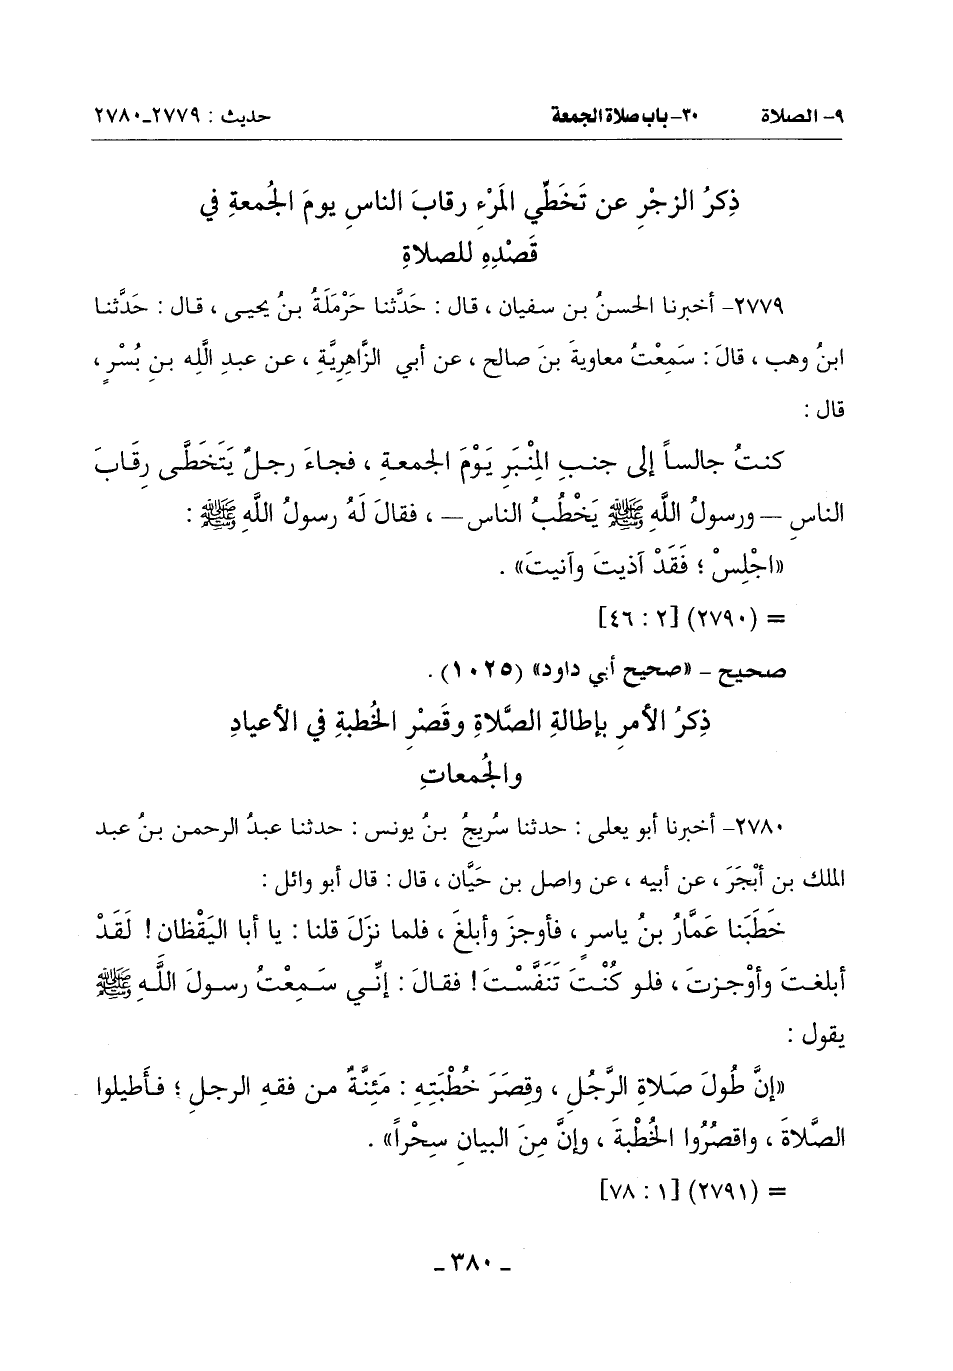 ٩- الصلاة ٣٠- باب صلاة الجمعة حديث : ٢٧٧٩-٢٧٨٠
ذِكرُ الزجْرِ عن تَخَطِّي المَرْءِ رقابَ الناسِ يومَ الجُمعةِ في
قَصْدِهِ للصلاةِ
٢٧٧٩- أخبرنا الحسنُ بن سفيان ، قال : حَدَّثنا حَرْمَلَةُ بنُ يحيى ، قال : حَدَّثنا
ابنُ وهب ، قالَ : سَمِعْتُ معاويةَ بنَ صالح ، عن أبي الزَّاهِرِيَّةِ ، عن عبدِ اللَّه بنِ بُسْرٍ ،
قال :
كنتُ جالساً إلى جنبِ المِنْبَرِ يَوْمَ الجمعةِ ، فجاءَ رجلٌ يَتَخَطَّى رِقَابَ
الناسِ – ورسولُ اللَّهِ ﷺ يَخْطُبُ الناس– ، فقالَ لَهُ رسولُ اللَّهِ ﷺ :
«اجْلِسْ ؛ فَقَدْ آذيتَ وآنيتَ» .
= (٢٧٩٠) [٢ : ٤٦]
صحيح – «صحيح أبي داود» (١٠٢٥) .
ذِكرُ الأمرِ بإطالةِ الصَّلاةِ وقَصْرِ الخُطبةِ في الأعيادِ
والجُمعاتِ
٢٧٨٠- أخبرنا أبو يعلى : حدثنا سُريجُ بنُ يونس : حدثنا عبدُ الرحمن بنُ عبد
الملك بن أَبْجَرَ ، عن أبيه ، عن واصل بن حَيَّان ، قال : قال أبو وائل :
خَطَبَنا عَمَّارُ بنُ ياسرٍ ، فأوجزَ وأبلغَ ، فلما نزَلَ قلنا : يا أبا اليَقْظان! لَقَدْ
أبلغتَ وأوْجزتَ ، فلو كُنْتَ تَنَفَّسْتَ! فقالَ : إنِّي سَمِعْتُ رسولَ اللَّهِ ﷺ
يقول :
«إنَّ طُولَ صَلاةِ الرَّجُلِ ، وقِصَرَ خُطْبَتِهِ : مَئِنَّةٌ من فقهِ الرجلِ ؛ فأَطيلوا
الصَّلاةَ ، واقصُرُوا الخُطْبةَ ، وإنَّ مِنَ البيانِ سِحْراً» .
= (٢٧٩١) [١ : ٧٨]
- ٣٨٠ -